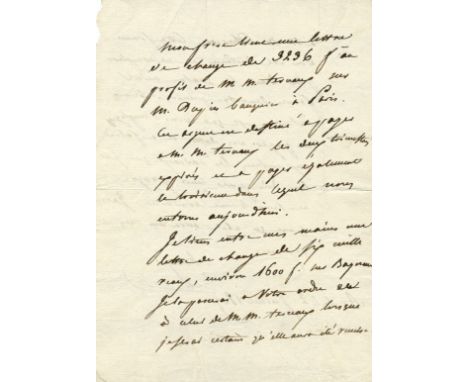 mon frere tient une lettre
de change de 3236 f. au
profit de M M ternaux sur
M. banquier à Paris.
Cet argent est destiné a payer
a M. M. ternaux les deux trimestres
expirés et a payer également
le troisieme dans lequel nous
entrons aujourd'hui.
Je tiens entre mes mains une
lettre de change de six mille
reaux, environ 1600 f. sur
Je la passerai a votre ordre ou
à celui de M. M. ternaux lorsque
je serai certain qu'elle aura été